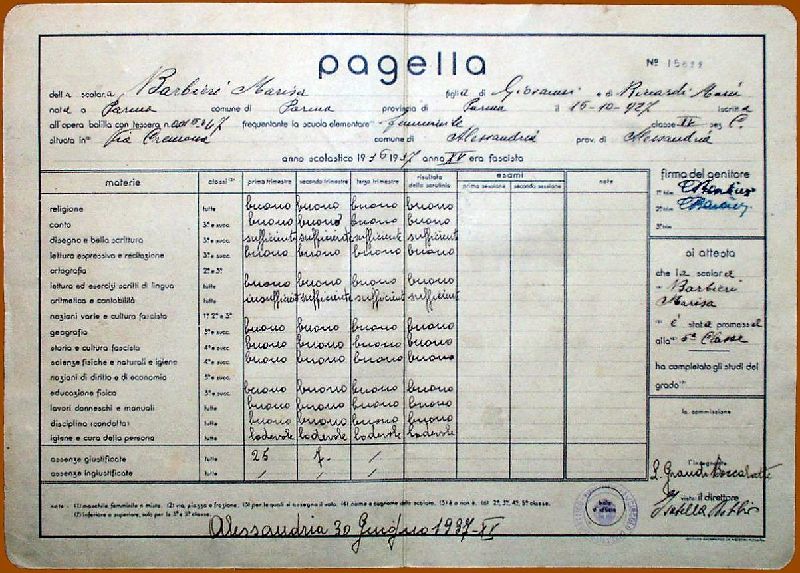 pagella
Nº 156
della scolara Barbieri Marisa figlia di Giovanni e di
nata a Parma comune di Parma provincia di Parma il 15-10-927 iscritta
all'opera balilla con tessera n. frequentante la scuola elementare femminile classe IV sez. C.
situata in Via Cremona comune di Alessandria prov. di Alessandria
anno scolastico 1936 1937 anno XV era fascista
materie classi primo trimestre secondo trimestre terzo trimestre risultato dello scrutinio esami prima sessione seconda sessione note
religione tutte buono buono buono buono
canto 3ª e succ. buono buono buono buono
disegno e bella scrittura tutte sufficiente sufficiente sufficiente sufficiente
lettura espressiva e recitazione 3ª e succ. buono buono buono buono
ortografia 2ª e 3ª
lettura ed esercizi scritti di lingua tutte buono buono buono buono
aritmetica e contabilità tutte insufficiente sufficiente sufficiente sufficiente
nozioni varie e cultura fascista 1ª 2ª e 3ª
geografia 3ª e succ. buono buono buono buono
storia e cultura fascista 4ª e succ. buono buono buono buono
scienze fisiche e naturali e igiene 4ª e succ. buono buono buono buono
nozioni di diritto e di economia 5ª e succ.
educazione fisica 3ª e succ. buono buono buono buono
lavori donneschi e manuali tutte buono buono buono buono
disciplina (condotta) tutte buono buono buono buono
igiene e cura della persona tutte lodevole lodevole lodevole lodevole
assenze giustificate tutte 25 7 /
assenze ingiustificate tutte / / /
firma del genitore
1º trim.
2º trim.
3º trim.
si attesta
che la scolara
Barbieri
Marisa
è stata promossa
alla 5ª Classe
ha completato gli studi del
grado
la commissione
l'insegnante
visto il direttore
note - (1) maschile femminile o mista. (2) via, piazza o frazione. (3) per le quali si assegna il voto. (4) nome e cognome dello scolaro. (5) è o non è. (6) 2ª, 3ª, 4ª, 5ª classe.
(7) inferiore o superiore, solo per la 3ª e 5ª classe.
Alessandria 30 Giugno 1937-XV